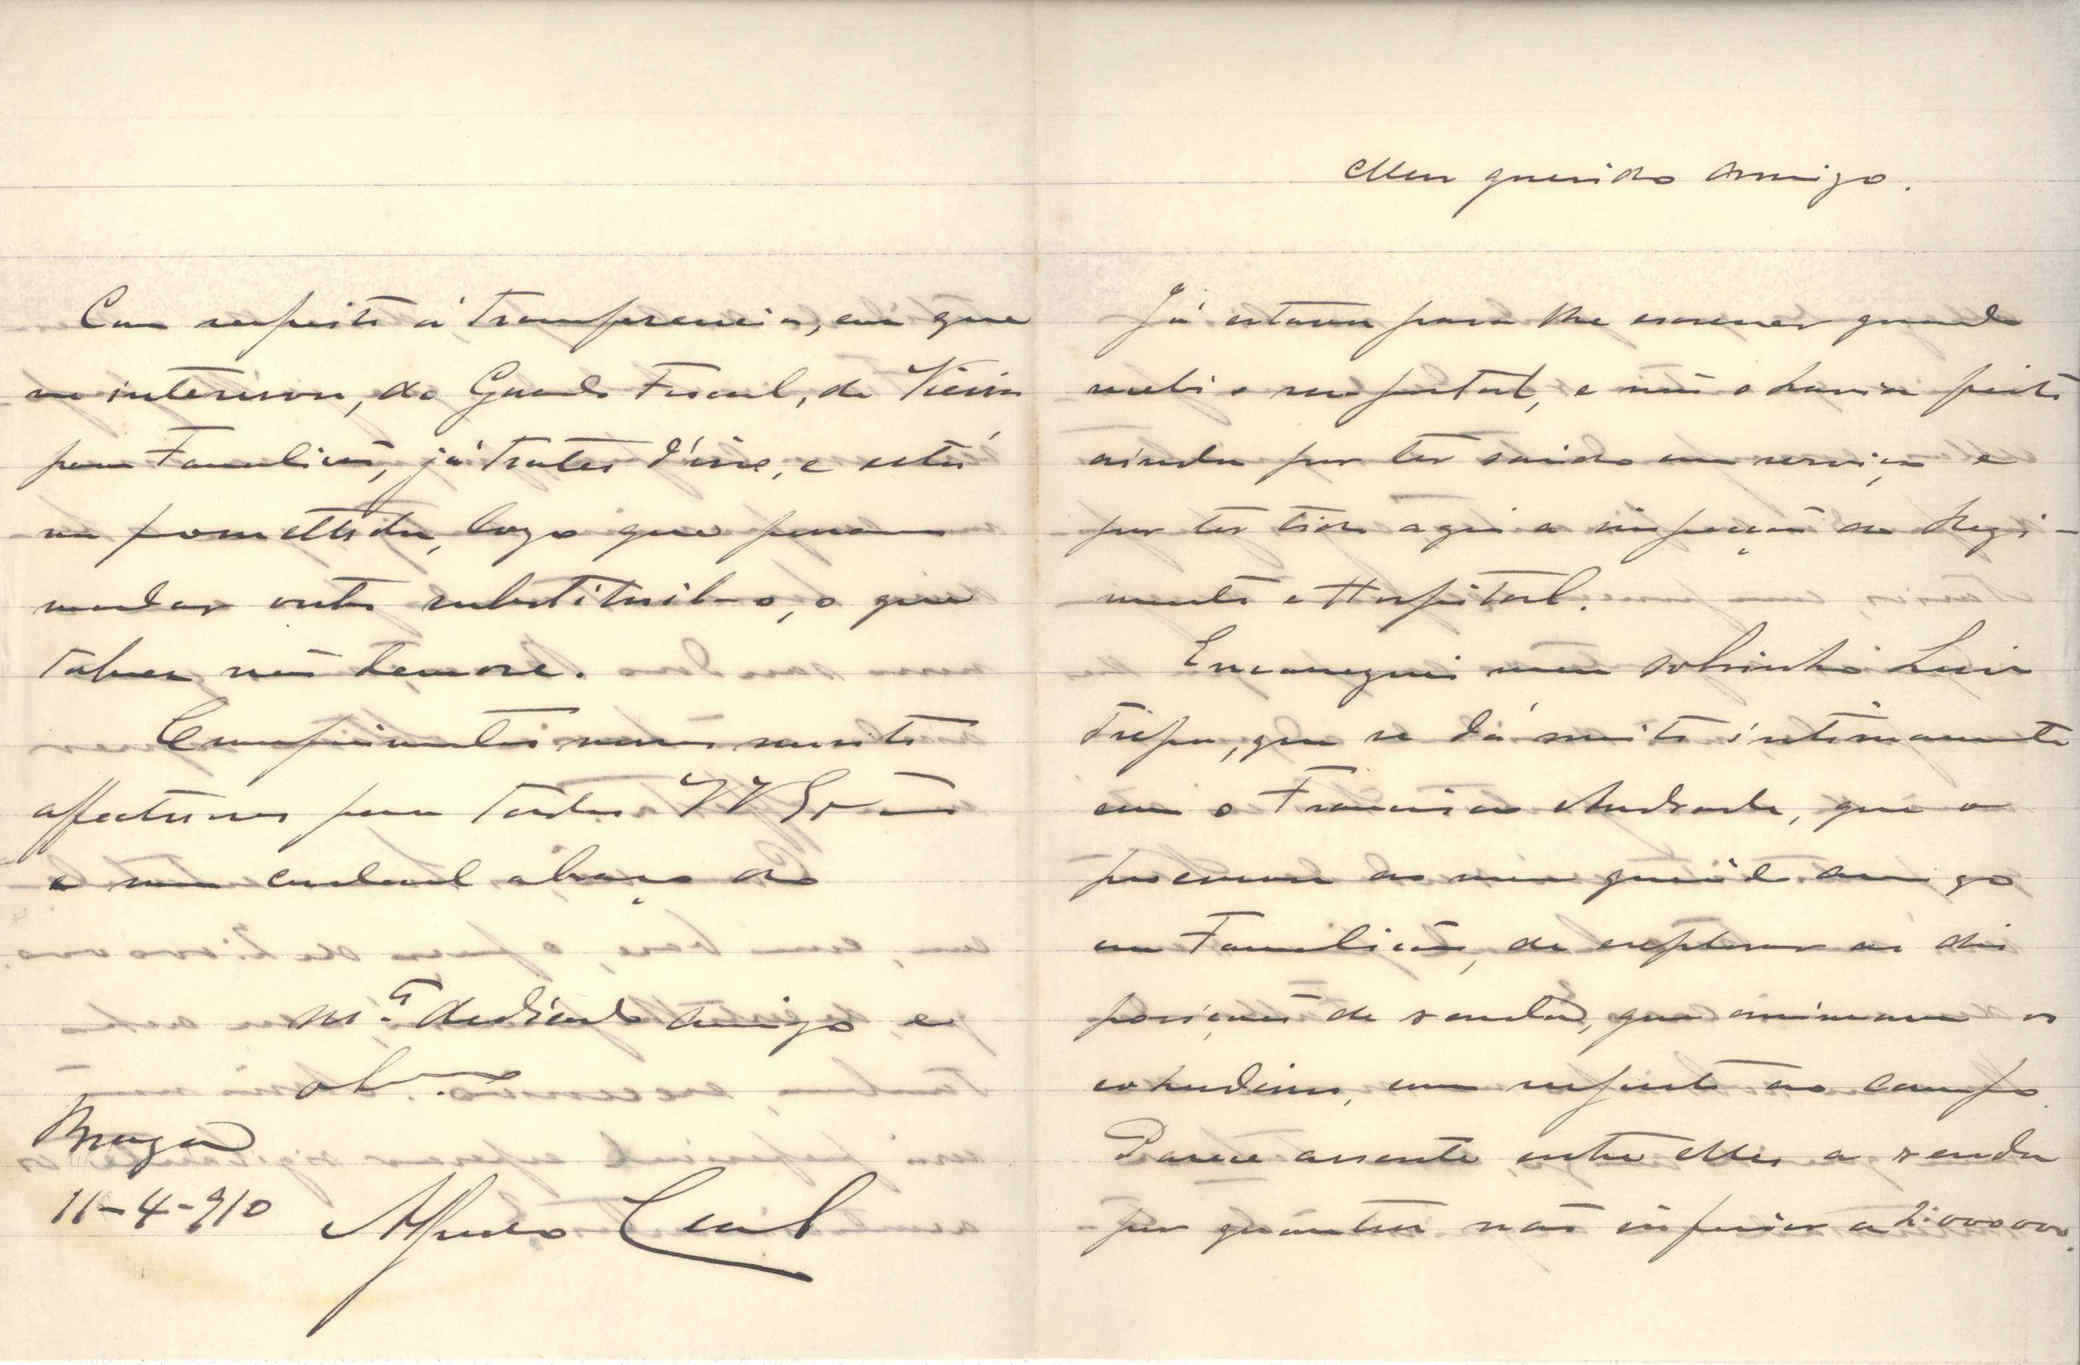 Meu querido Amigo.
Já estava para lhe escrever quando
recebi o seu postal, e não o havia feito
ainda por ter saido em serviço e
por ter tido aqui a inspeção ao Regi-
mento e Hospital.
Encarreguei meu sobrinho Luiz
Trepa, que se dá muito intimamente
com o Francisco Andrade, que o
procurou do meu querido amigo
em Famalicão, de explorar as dis
posições de venda, que animam os
herdeiros, com respeito ao campo.
Parece assente, entre elles a venda
por quantia não inferior a 2:000000.
Com respeito á transferencia, em que
se interessou, do Guarda Fiscal, de Vieira
para Famalicão, já tratei d'isso, e está
me promettida, logo que possam
mandar outro substituil-o, o que
talvez não demore.
Cumprimentos nossos muito
affectuosos para todos V V Ex.as
e um cordeal abraço do
m.to dedicado amigo e
ob.do
Braga
11-4-910
Alfredo Leal